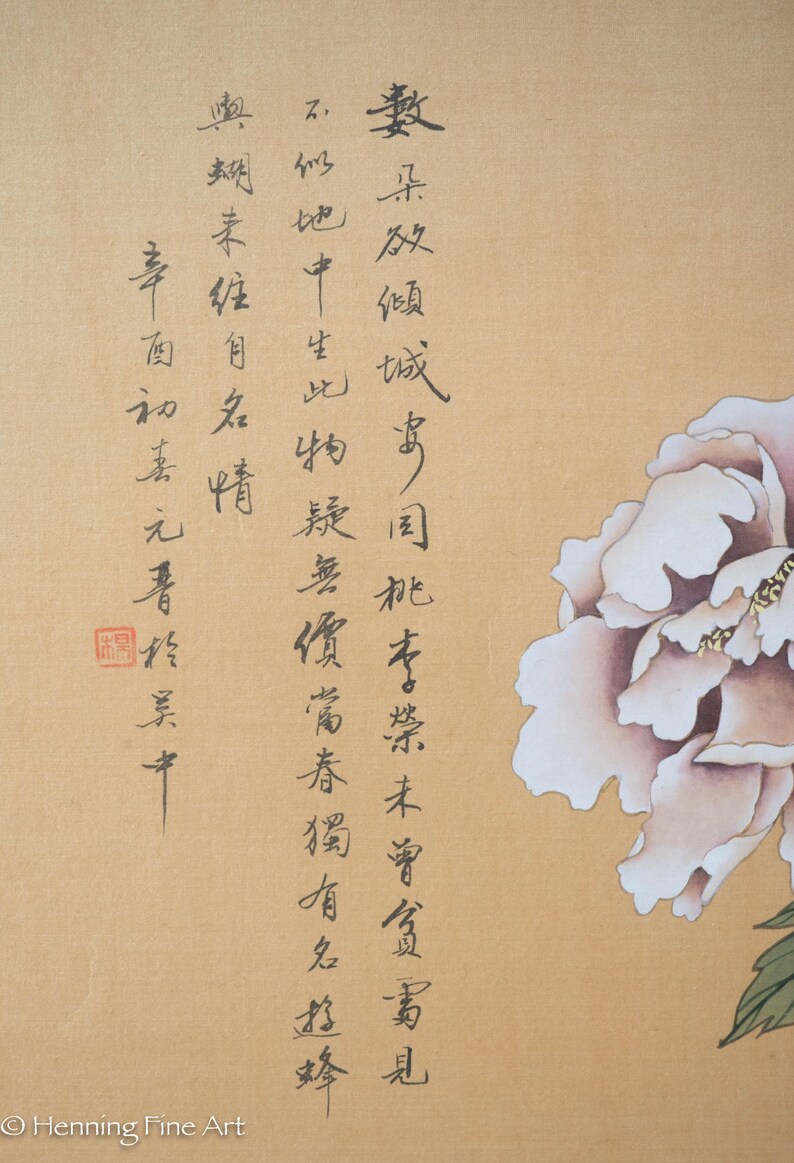 數朵欲傾城安同桃李榮未曾貧處見
不似地中生此物疑無價當春獨有名遊蜂
與蝴來往自名情
辛酉初春元晋於吴中
楊
© Henning Fine Art